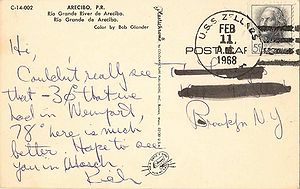 C-14-002
ARECIBO, P.R.
Rio Grande River de Arecibo.
Rio Grande de Arecibo.
Color by Bob Glander
Hi,
Couldn't really see
that -3° that we
had in Newport,
78° here is much
better. Hope to see
you in March.
U.S.S. ZELLARS
FEB
11
A.M.
1968
POSTCARD
5¢
Brooklyn N.Y.